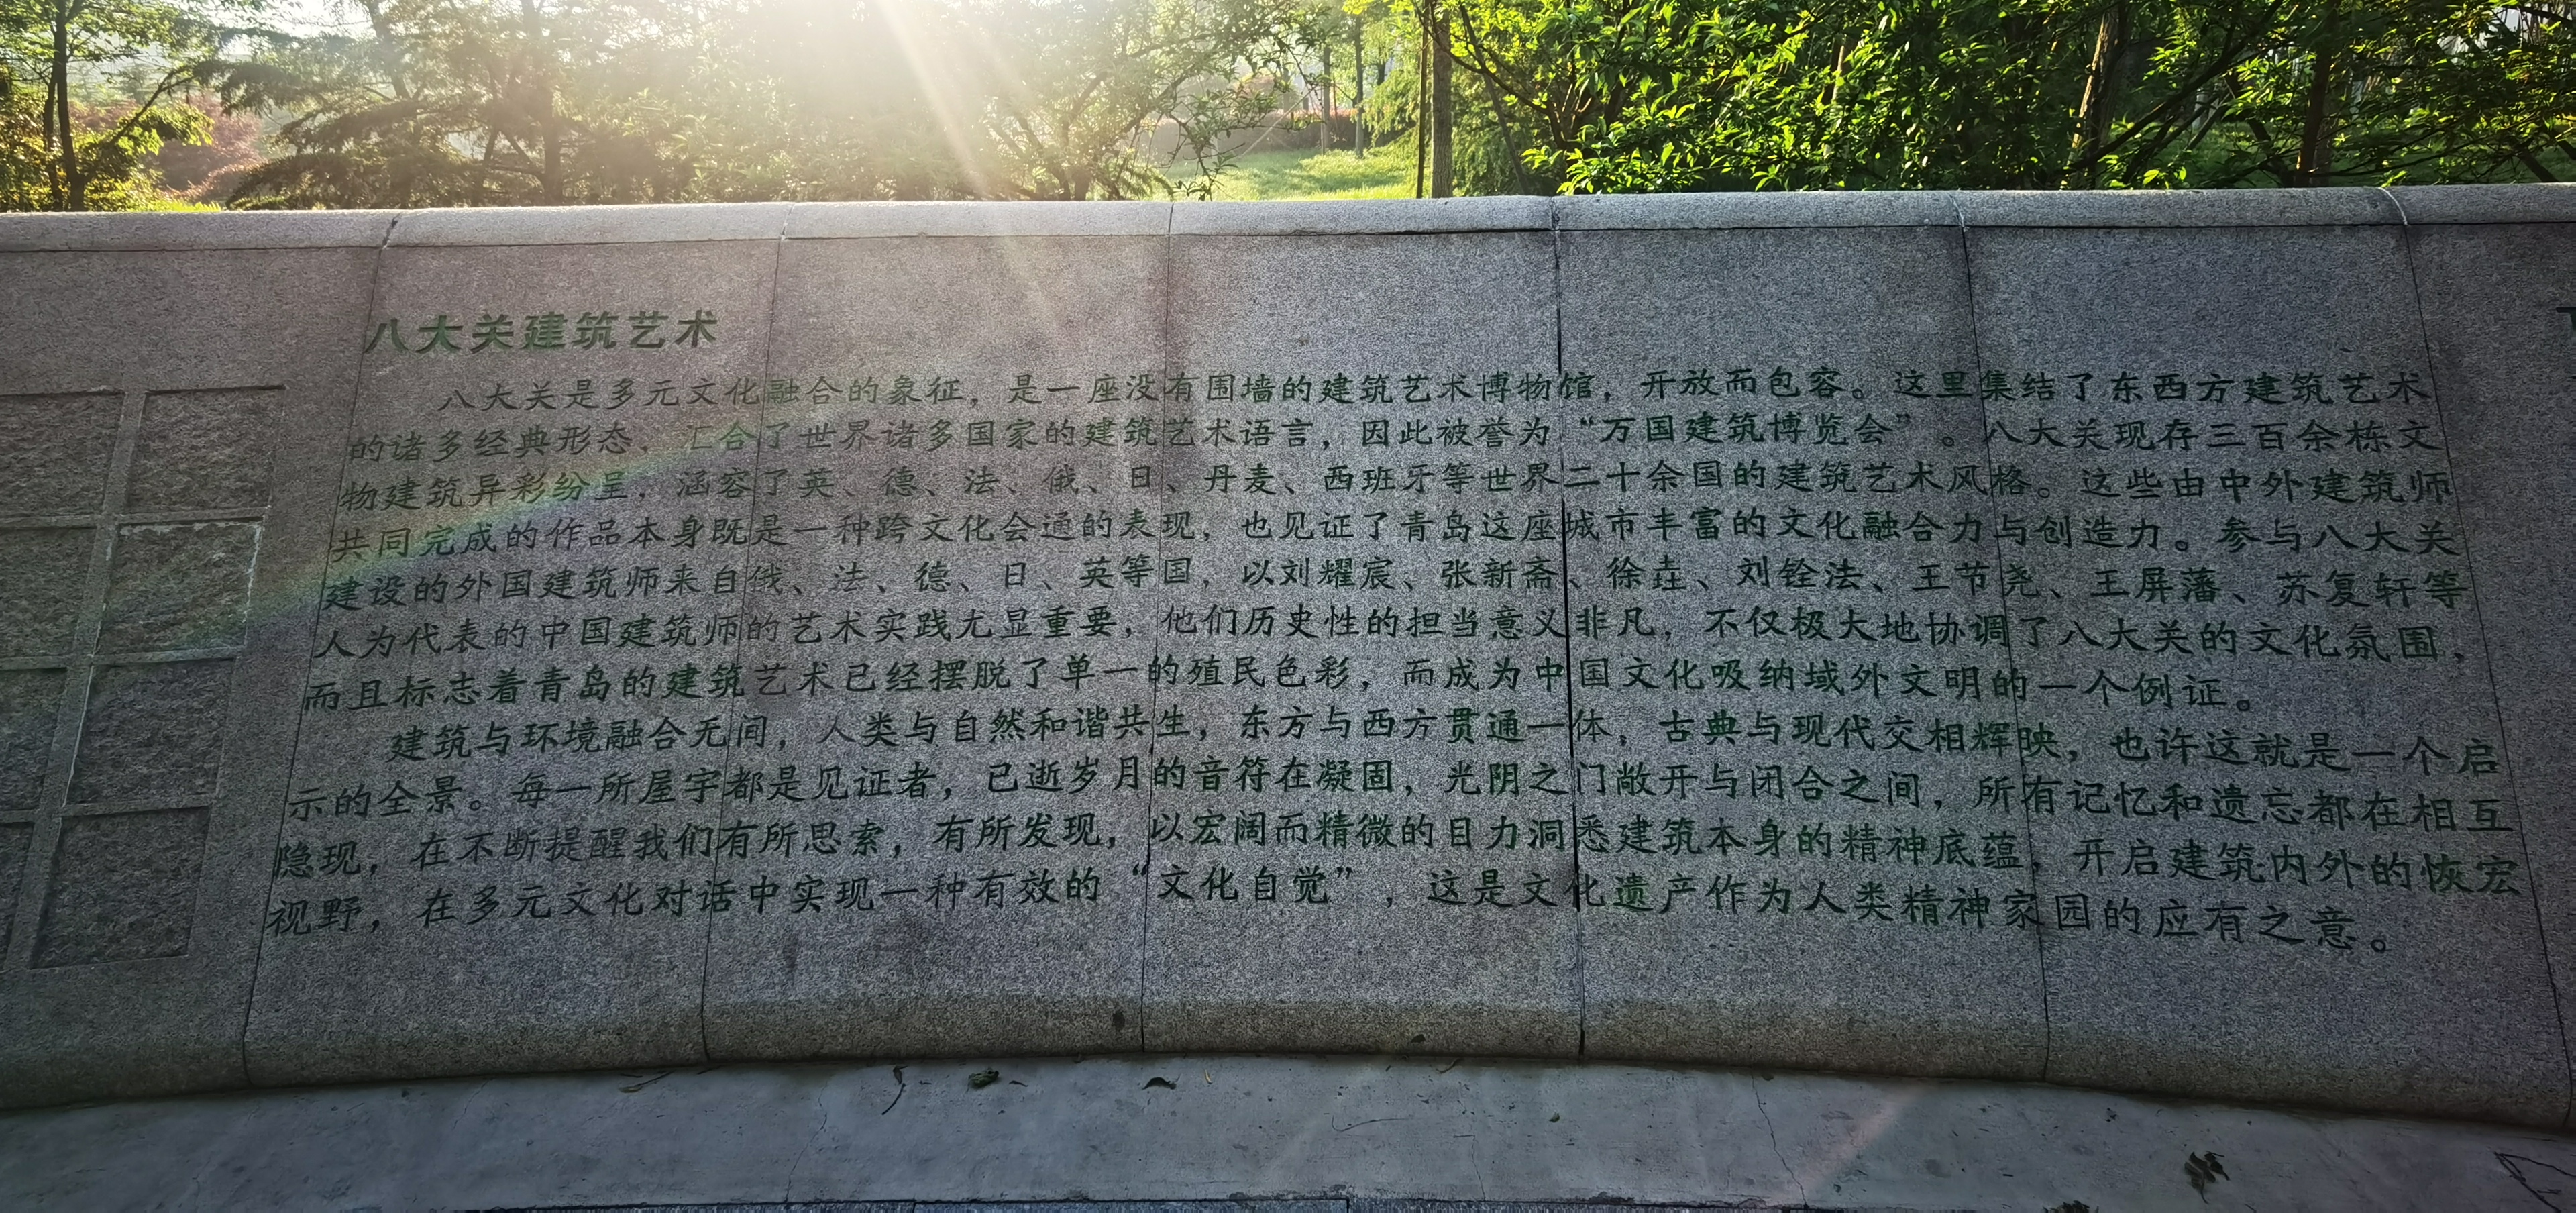 八大关建筑艺术
八大关是多元文化融合的象征，是一座没有围墙的建筑艺术博物馆，开放而包容。这里集结了东西方建筑艺术
的诸多经典形态，汇合了世界诸多国家的建筑艺术语言，因此被誉为“万国建筑博览会”。八大关现存三百余栋文
物建筑异彩纷呈，涵容了英、德、法、俄、日、丹麦、西班牙等世界二十余国的建筑艺术风格。这些由中外建筑师
共同完成的作品本身既是一种跨文化会通的表现，也见证了青岛这座城市丰富的文化融合力与创造力。参与八大关
建设的外国建筑师来自俄、法、德、日、英等国，以刘耀宸、张新斋、徐垚、刘铨法、王节尧、王屏藩、苏复轩等
人为代表的中国建筑师的艺术实践尤显重要，他们历史性的担当意义非凡，不仅极大地协调了八大关的文化氛围，
而且标志着青岛的建筑艺术已经摆脱了单一的殖民色彩，而成为中国文化吸纳域外文明的一个例证。
建筑与环境融合无间，人类与自然和谐共生，东方与西方贯通一体，古典与现代交相辉映，也许这就是一个启
示的全景。每一所屋宇都是见证者，已逝岁月的音符在凝固，光阴之门敞开与闭合之间，所有记忆和遗忘都在相互
隐现，在不断提醒我们有所思索，有所发现，以宏阔而精微的目力洞悉建筑本身的精神底蕴，开启建筑内外的恢宏
视野，在多元文化对话中实现一种有效的“文化自觉”，这是文化遗产作为人类精神家园的应有之意。